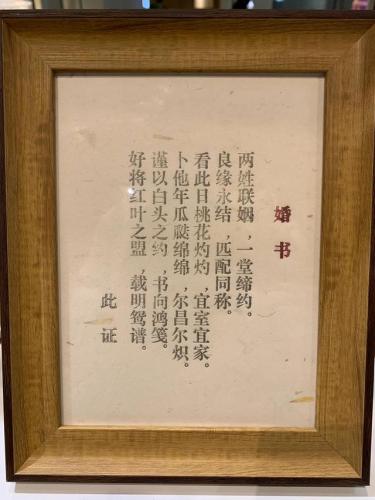 婚书
两姓联姻，一堂缔约。
良缘永结，匹配同称。
看此日桃花灼灼，宜室宜家。
卜他年瓜瓞绵绵，尔昌尔炽。
谨以白头之约，书向鸿笺。
好将红叶之盟，载明鸳谱。
此证